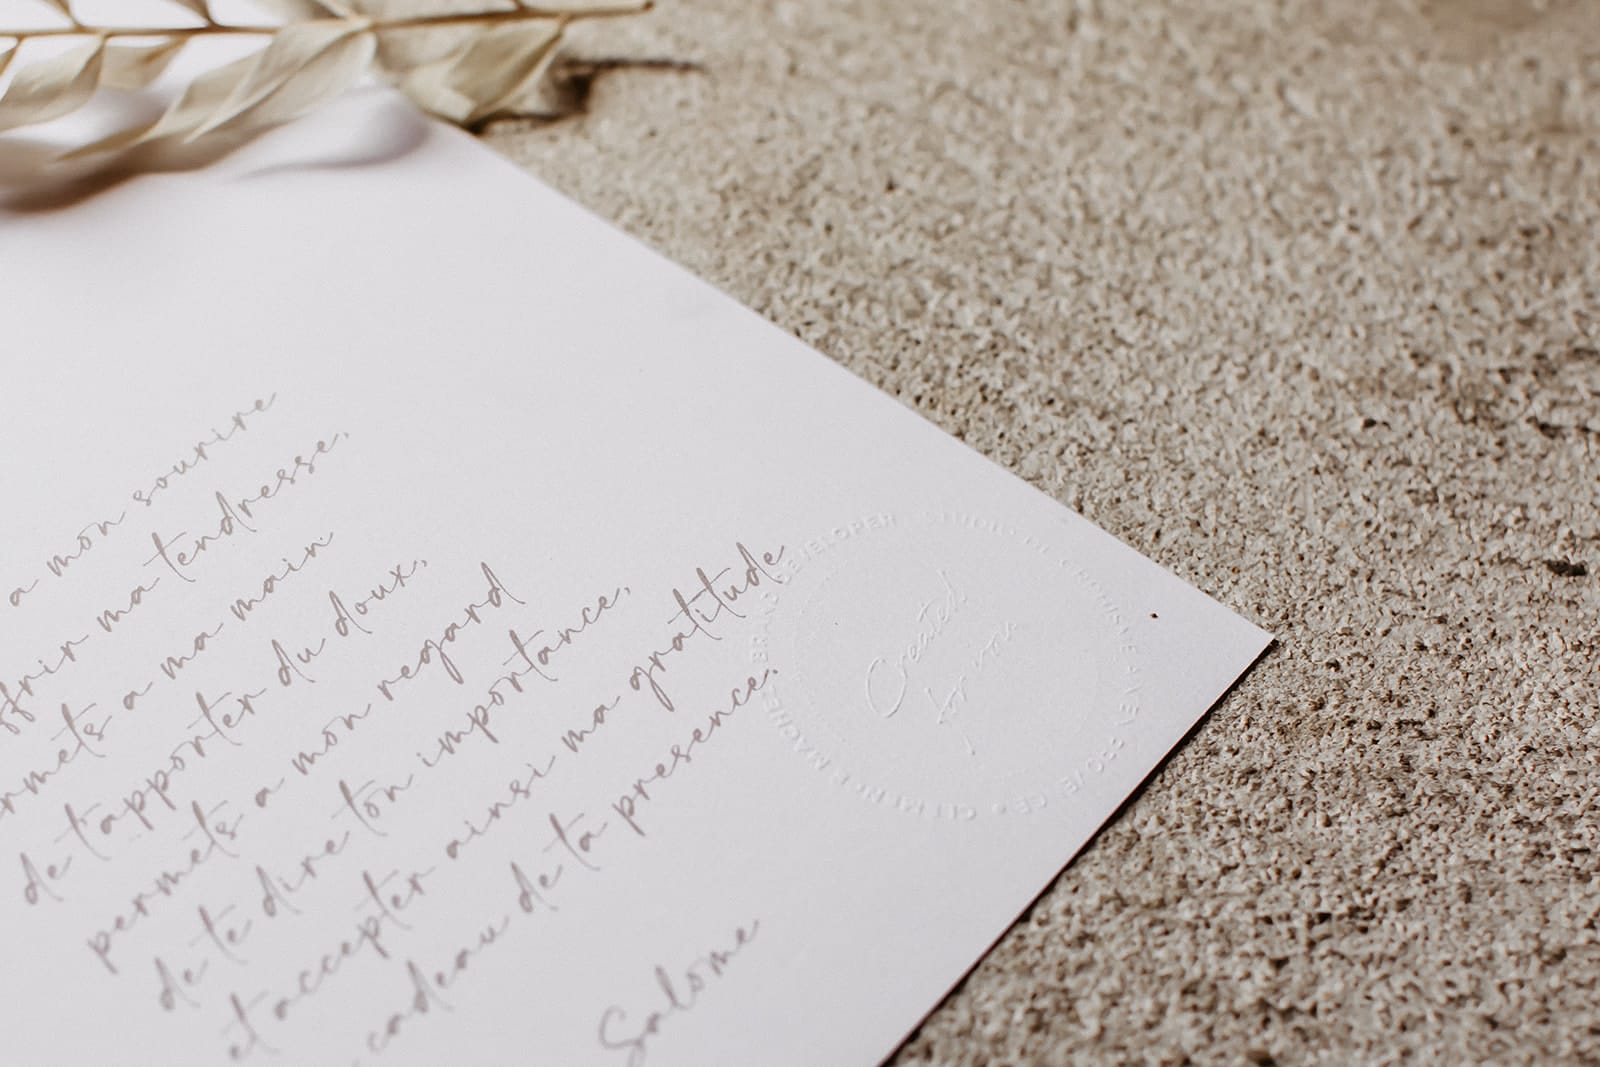 a mon sourire
ffrir ma tendresse,
rmets a ma main
de t'apporter du doux,
permets a mon regard
de te dire ton importance,
et accepter ainsi ma gratitude
cadeau de ta presence.
Salome
Created
for you
BRAND DEVELOPER